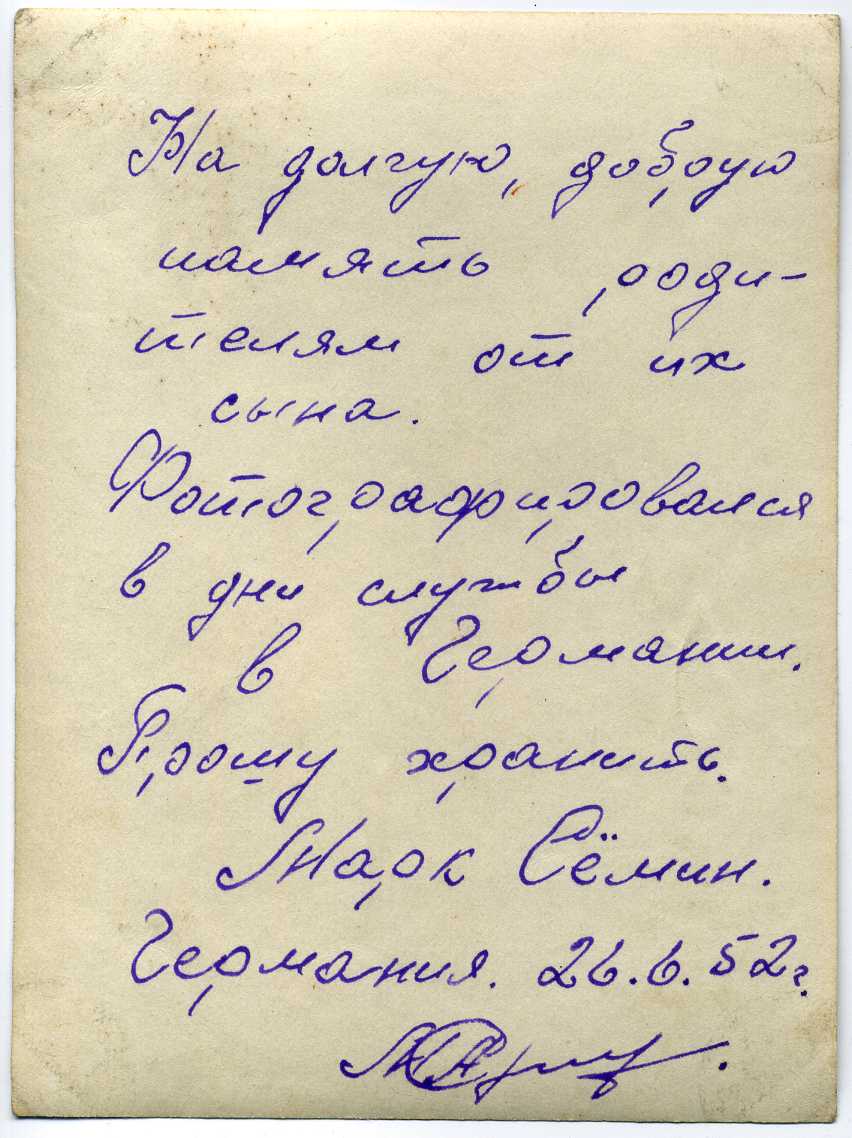 На долгую, добрую
память роди-
телям от их
сына.
Фотографировался
в дни службы
в Германии.
Прошу хранить.
Марк Сёмин.
Германия. 26.6.52г.